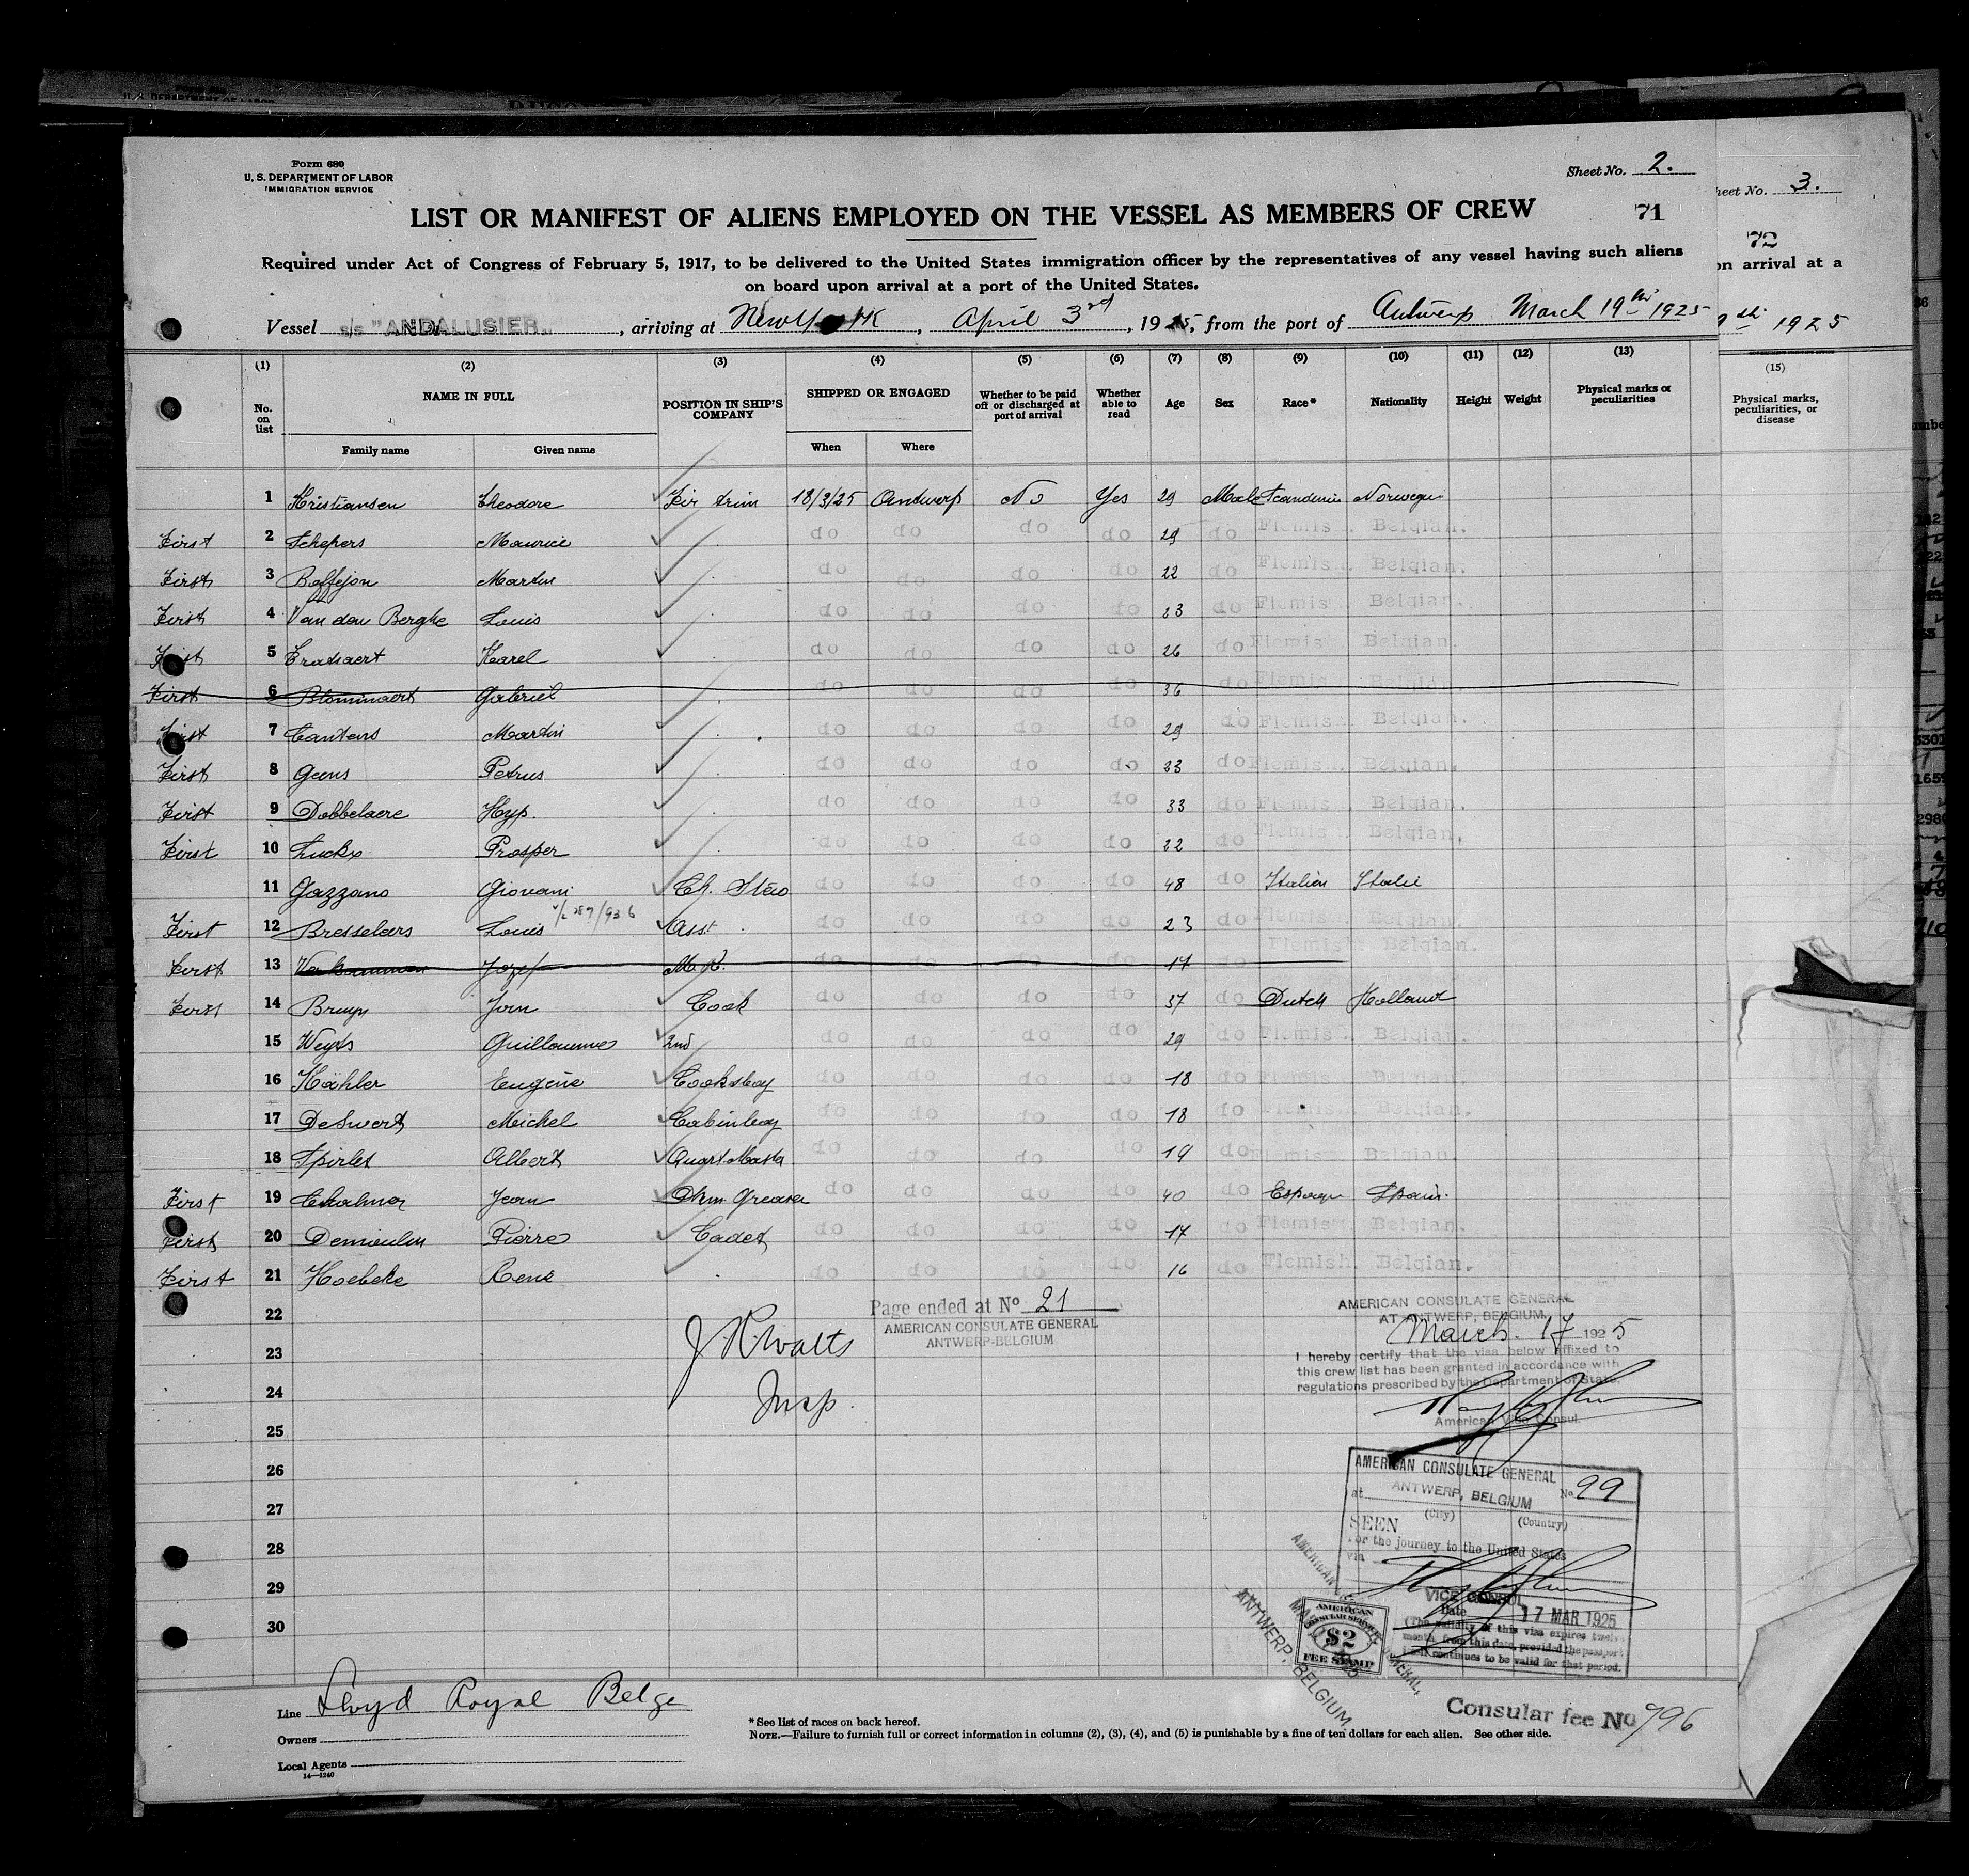 Form 680
U. S. DEPARTMENT OF LABOR
IMMIGRATION SERVICE
Sheet No. 2.
LIST OR MANIFEST OF ALIENS EMPLOYED ON THE VESSEL AS MEMBERS OF CREW
71
Required under Act of Congress of February 5, 1917, to be delivered to the United States immigration officer by the representatives of any vessel having such aliens
on board upon arrival at a port of the United States.
Vessel s/s "ANDALUSIER", arriving at New York, April 3rd, 1925, from the port of Antwerp March 19th 1925
Sheet No. 3.
72
on arrival at a
th 1925
(15)
Physical marks, peculiarities, or disease
(1) (2) (3) (4) (5) (6) (7) (8) (9) (10) (11) (12) (13)
No. on list NAME IN FULL POSITION IN SHIP'S COMPANY SHIPPED OR ENGAGED Whether to be paid off or discharged at port of arrival Whether able to read Age Sex Race* Nationality Height Weight Physical marks or peculiarities
Family name Given name When Where
1 Kristiansen Theodore Fir trim 18/3/25 Antwerp No Yes 29 Male
First 2 Schepers Maurice do do do do 29 do Flemish. Belgian.
First 3 Martin do do do do 22 do Flemish. Belgian.
First 4 Van den Berghe Louis do do do do 23 do Flemish. Belgian.
First 5 Karel do do do do 26 do Flemish. Belgian.
First 6 Blommaert Gabriel do do do do 36 do Flemish. Belgian.
First 7 Cantens Martin do do do do 29 do Flemish. Belgian.
First 8 Geens Petrus do do do do 33 do Flemish. Belgian.
First 9 Dobbelaere Hyp. do do do do 33 do Flemish. Belgian.
First 10 Luckx Prosper do do do do 22 do Flemish. Belgian.
11 Gazzano Giovani Ch. do do do do 48 do Italien Italie
First 12 Bresseleers Louis Asst do do do do 23 do Flemish. Belgian.
First 13 Jozef do do do do 17 do Flemish. Belgian.
First 14 Bruyn Cook do do do do 37 do Dutch Holland
15 Weyts Guillaume 2nd do do do do 29 do Flemish. Belgian.
16 Kähler Eugène Cooksboy do do do do 18 do Flemish. Belgian.
17 De Swert Michel Cabinboy do do do do 18 do Flemish. Belgian.
18 Spirlet Albert Quart Master do do do do 19 do Flemish. Belgian.
First 19 Jean Greaser do do do do 40 do Spain.
First 20 Demoulin Pierre Cadet do do do do 17 do Flemish. Belgian.
First 21 Hoebeke René do do do do 16 do Flemish. Belgian.
22
23
24
25
26
27
28
29
30
Page ended at No 21
AMERICAN CONSULATE GENERAL
ANTWERP-BELGIUM
J. R. Watts
Insp.
AMERICAN CONSULATE GENERAL
AT ANTWERP, BELGIUM,
March. 17 1925
I hereby certify that the visa below affixed to
this crew list has been granted in accordance with
regulations prescribed by the Department of State.
American Vice Consul
AMERICAN CONSULATE GENERAL
at ANTWERP, BELGIUM No 99
(City) (Country)
SEEN
For the journey to the United States
via
VICE CONSUL
Date 17 MAR 1925
(The validity of this visa expires twelve
months from this date, provided the passport
continues to be valid for that period.
AMERICAN
CONSULAR SERVICE
$2
FEE STAMP
ANTWERP, BELGIUM
Consular fee No 796
Line Lloyd Royal Belge
Owners
Local Agents
14—1240
* See list of races on back hereof.
NOTE.—Failure to furnish full or correct information in columns (2), (3), (4), and (5) is punishable by a fine of ten dollars for each alien. See other side.